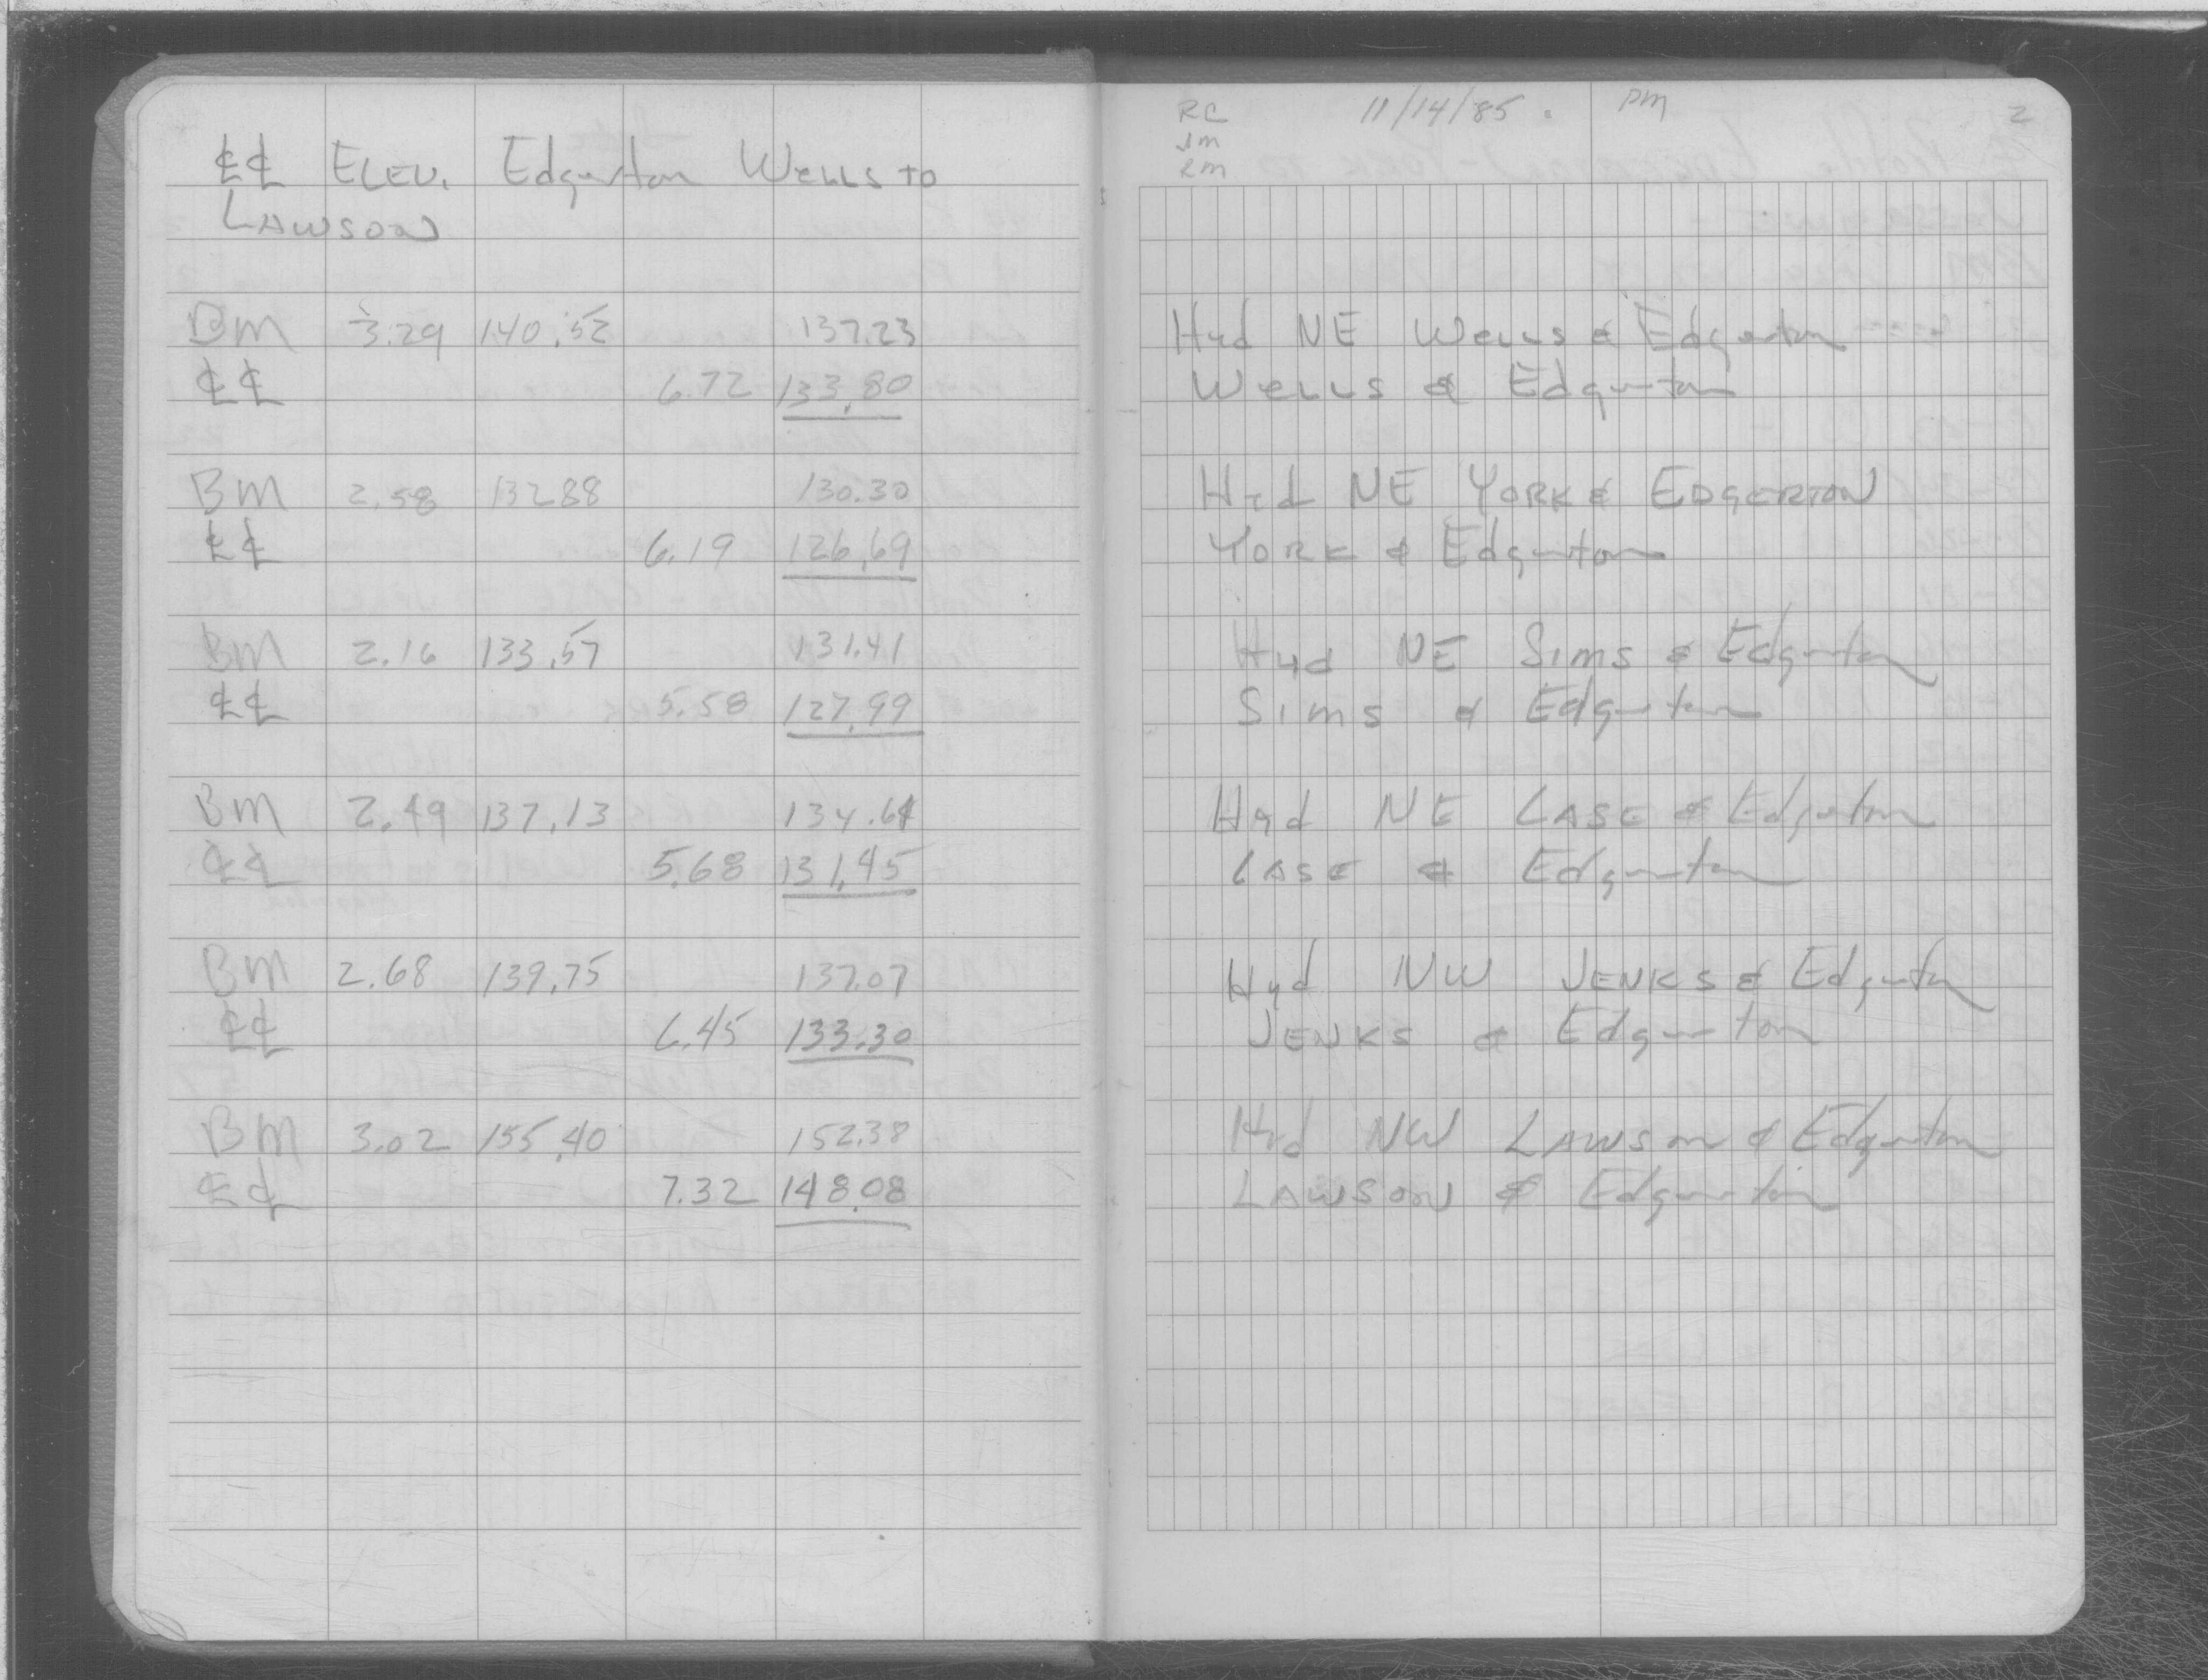 ℄℄ ELEV. Edgerton WELLS TO
LAWSON
BM 3.29 140.52 137.23
℄℄ 6.72 133.80
BM 2.58 132 88 130.30
℄℄ 6.19 126.69
BM 2.16 133.57 131.41
℄℄ 5.58 127.99
BM 2.49 137.13 134.64
℄℄ 5.68 131.45
BM 2.68 139.75 137.07
℄℄ 6.45 133.30
BM 3.02 155.40 152.38
℄℄ 7.32 148.08
RC 11/14/85. PM 2
JM
RM
Hyd NE Wells & Edgerton
Wells & Edgerton
Hyd NE YORK & EDGERTON
YORK & Edgerton
Hyd NE Sims & Edgerton
Sims & Edgerton
Hyd NE CASE & Edgerton
CASE & Edgerton
Hyd NW JENKS & Edgerton
JENKS & Edgerton
Hyd NW LAWSON & Edgerton
LAWSON & Edgerton